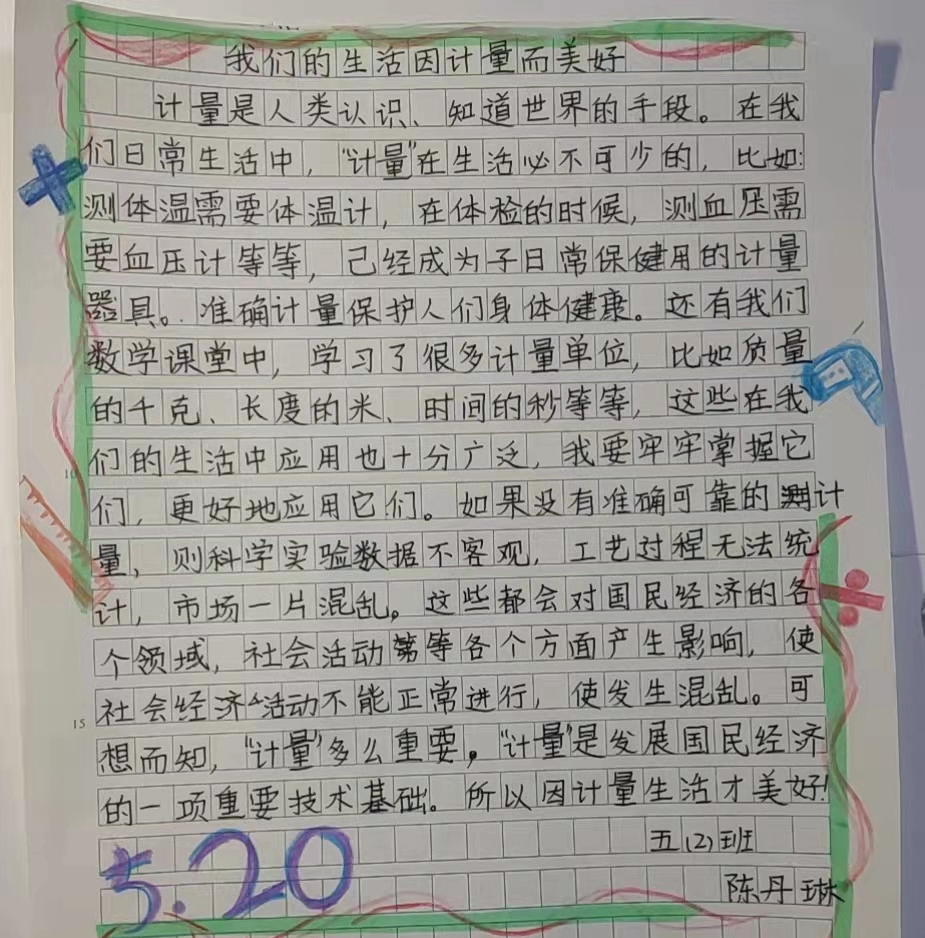 我们的生活因计量而美好
计量是人类认识、知道世界的手段。在我
们日常生活中，“计量”在生活必不可少的，比如：
测体温需要体温计，在体检的时候，测血压需
要血压计等等，己经成为子日常保健用的计量
器具。准确计量保护人们身体健康。还有我们
数学课堂中，学习了很多计量单位，比如质量
的千克、长度的米、时间的秒等等，这些在我
们的生活中应用也十分广泛，我要牢牢掌握它
们，更好地应用它们。如果没有准确可靠的测计
量，则科学实验数据不客观，工艺过程无法统
计，市场一片混乱。这些都会对国民经济的各
个领域，社会活动等等各个方面产生影响，使
社会经济活动不能正常进行，使发生混乱。可
想而知，“计量”多么重要，“计量”是发展国民经济
的一项重要技术基础。所以因计量生活才美好！
五(2)班
5.20
陈丹琳
10
15